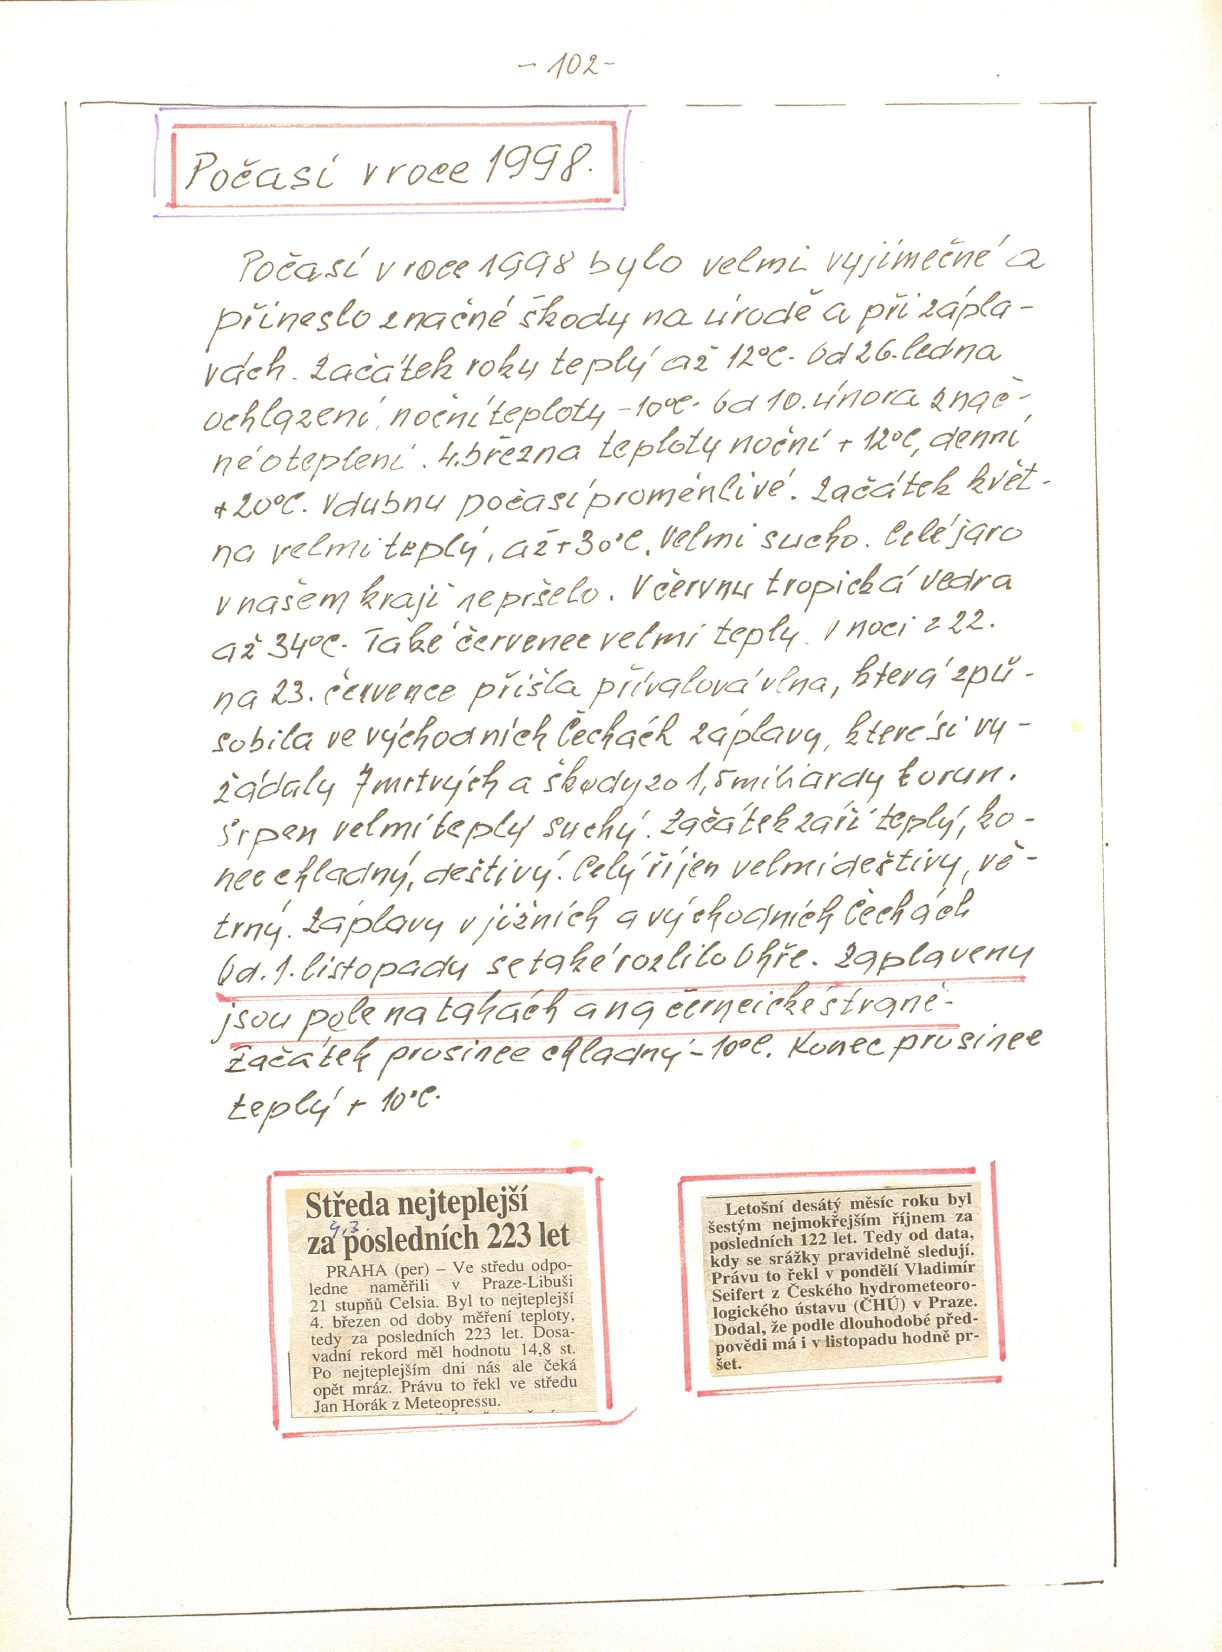 - 102 -
Počasí v roce 1998.
Počasí v roce 1998 bylo velmi vyjímečné a
přineslo značné škody na úrodě a při zápla-
vách. Začátek roku teplý až 12°C. Od 26. ledna
ochlazení, noční teploty -10°C. Od 10. února znač-
né oteplení. 4. března teploty noční + 12°C, denní
+ 20°C. V dubnu počasí proměnlivé. Začátek květ-
na velmi teplý, až + 30°C, velmi sucho. Celé jaro
v našem kraji nepršelo. V červnu tropická vedra
až 34°C. Také červenec velmi teplý. V noci z 22.
na 23. července přišla přívalová vlna, která způ-
sobila ve východních Čechách záplavy, které si vy-
žádaly 7 mrtvých a škody za 1,5 miliardy korun.
Srpen velmi teplý suchý. Začátek září teplý, ko-
nec chladný, deštivý. Celý říjen velmi deštivý, vě-
trný. Záplavy v jižních a východních Čechách
Od. 1. listopadu se také rozlilo Ohře. Zaplaveny
jsou pole na tahách a na černcické straně.
Začátek prosince chladný - 10°C. Konec prosince
teplý + 10°C.
Středa nejteplejší
4.3.
za posledních 223 let
PRAHA (per) – Ve středu odpo-
ledne naměřili v Praze-Libuši
21 stupňů Celsia. Byl to nejteplejší
4. březen od doby měření teploty,
tedy za posledních 223 let. Dosa-
vadní rekord měl hodnotu 14,8 st.
Po nejteplejším dni nás ale čeká
opět mráz. Právu to řekl ve středu
Jan Horák z Meteopressu.
Letošní desátý měsíc roku byl
šestým nejmokřejším říjnem za
posledních 122 let. Tedy od data,
kdy se srážky pravidelně sledují.
Právu to řekl v pondělí Vladimír
Seifert z Českého hydrometeoro-
logického ústavu (ČHÚ) v Praze.
Dodal, že podle dlouhodobé před-
povědi má i v listopadu hodně pr-
šet.